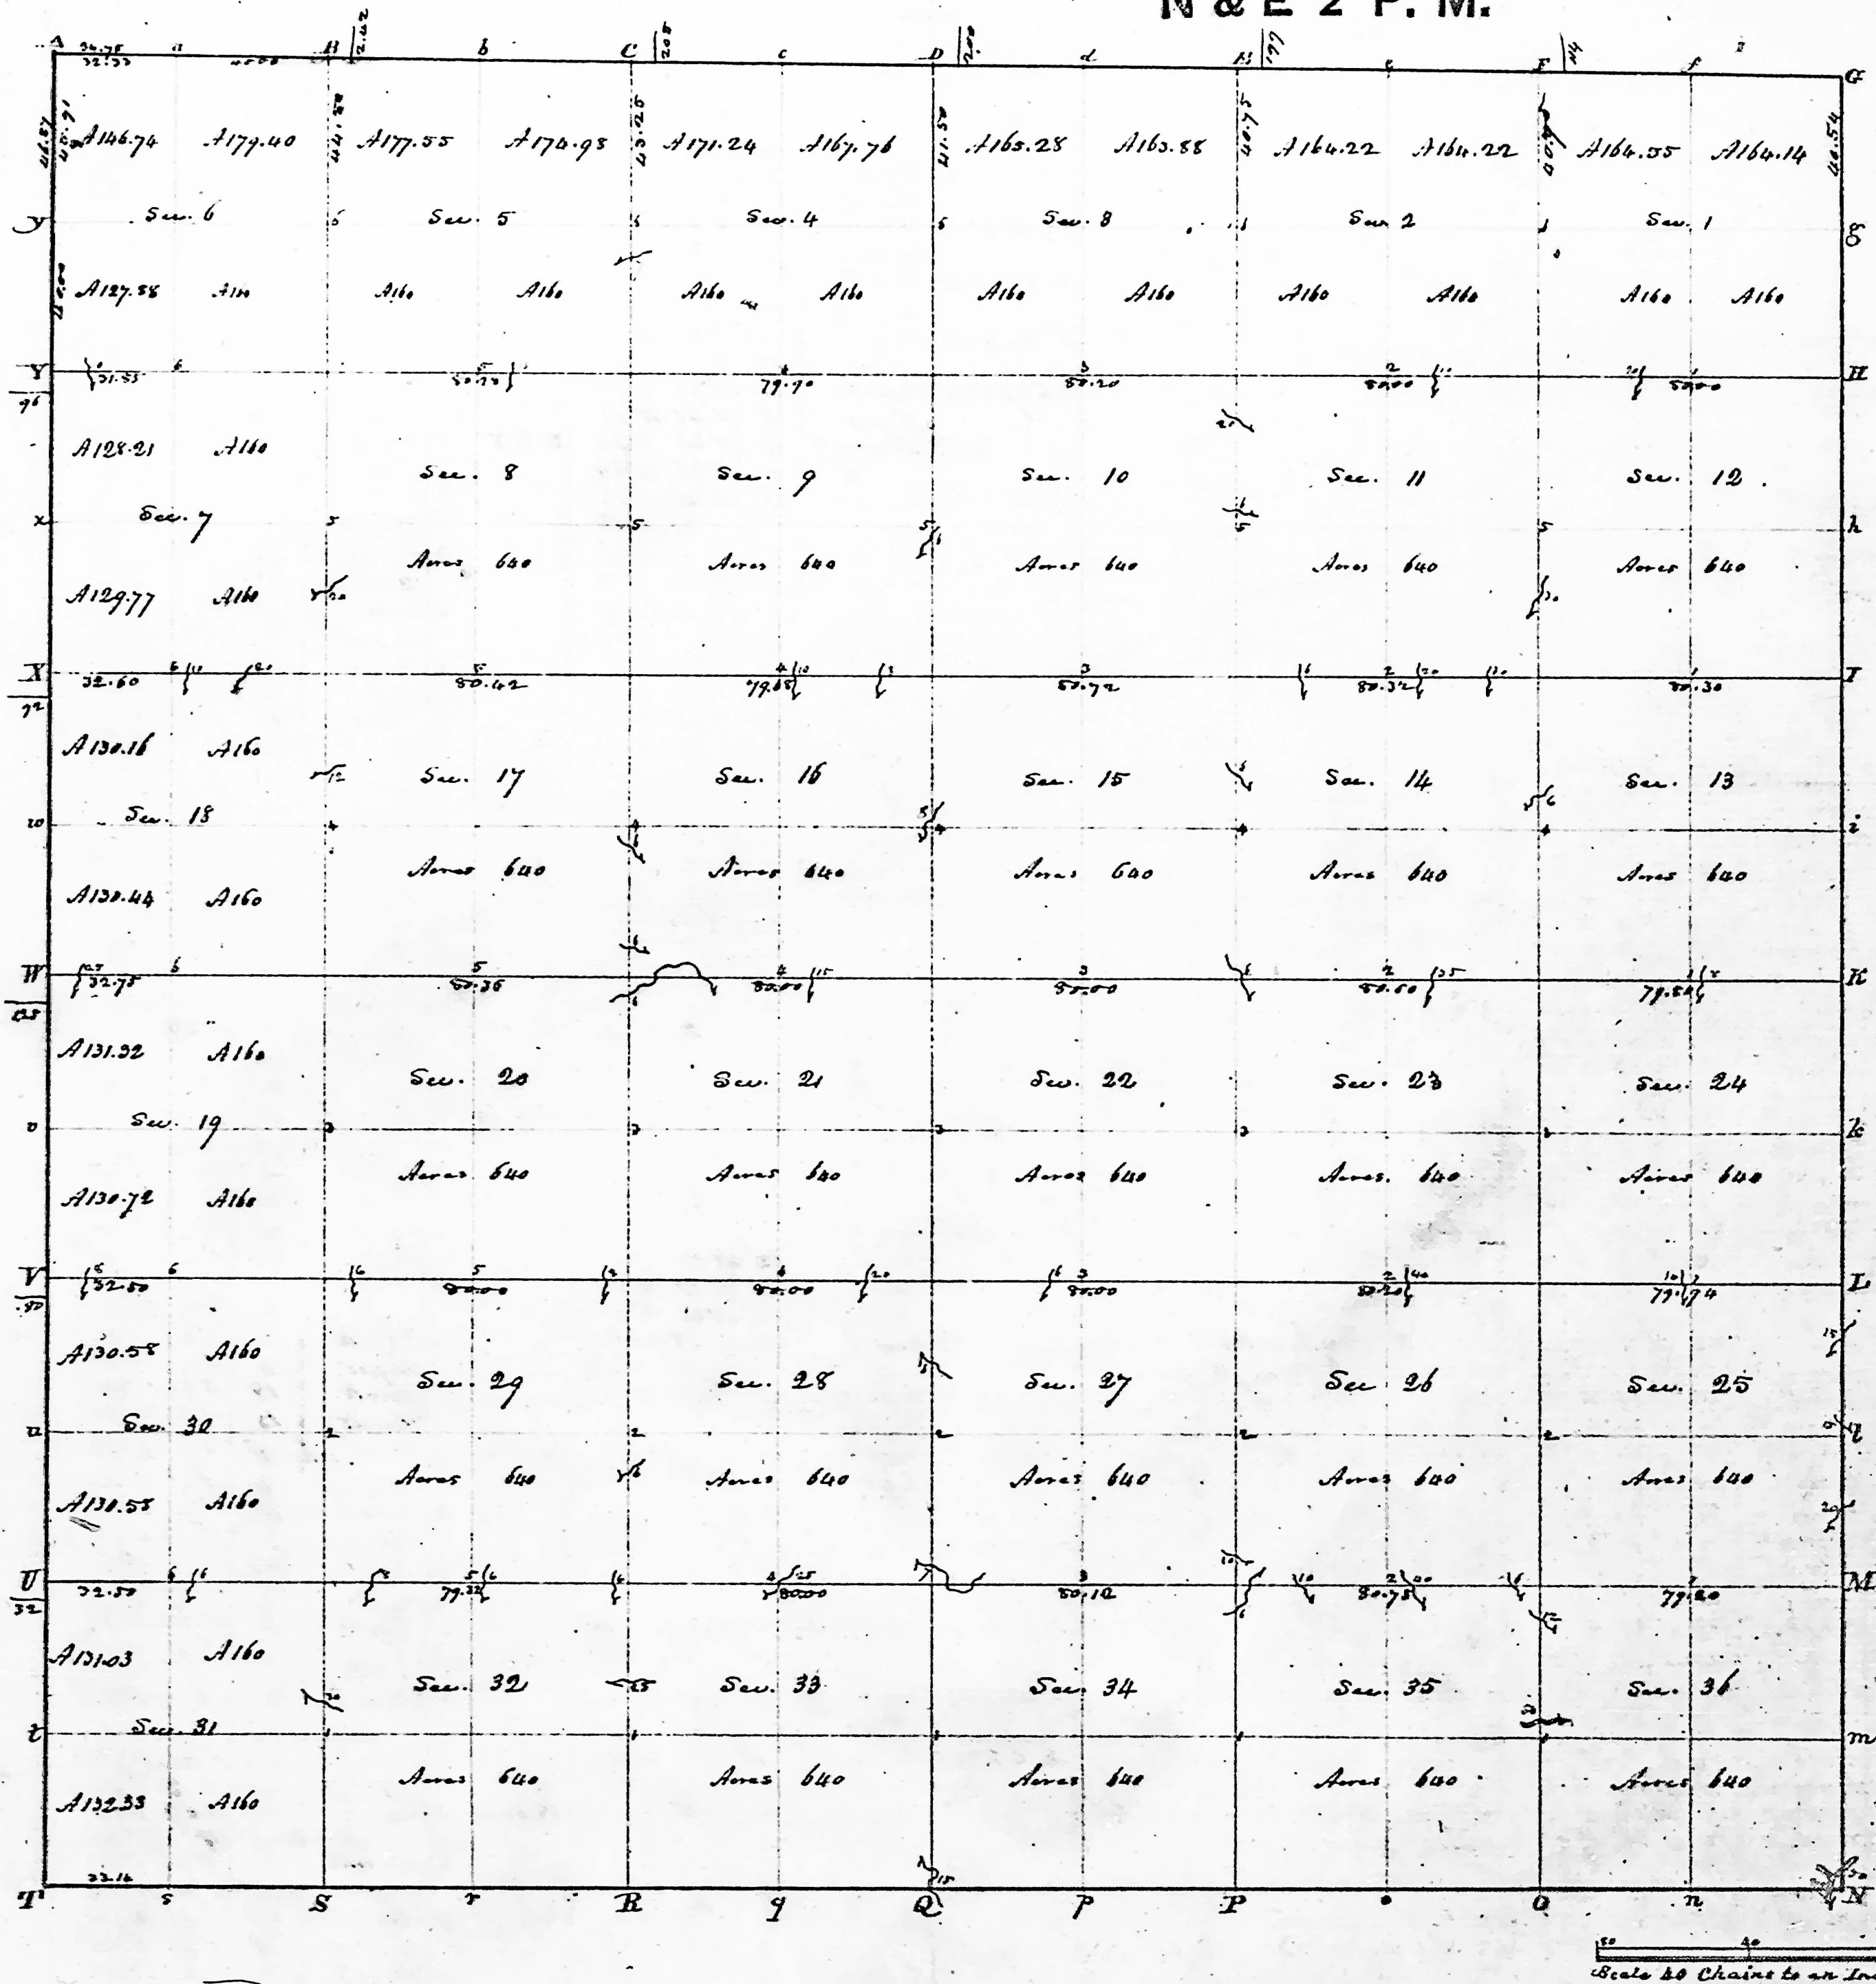 N & E 2 P. M.
A 34.75 a B 2.42 b C 205 c D 200 d E 197 e F 114 f G
32.33 40.00
A146.74 A179.40 A177.55 A174.98 A171.24 A167.76 A165.28 A163.88 A164.22 A164.22 A164.55 A164.14
45.91 44.80 43.25 41.50 40.75 40.54
y Sec. 6 Sec. 5 Sec. 4 Sec. 3 Sec. 2 Sec. 1 g
A127.88 A160 A160 A160 A160 A160 A160 A160 A160 A160 A160 A160
Y 6 5 4 3 2 1 H
96 31.85 79.70 80.20 80.00 80.00
A128.21 A160
Sec. 8 Sec. 9 Sec. 10 Sec. 11 Sec. 12
x Sec. 7 5 5 5 5 5 h
Acres 640 Acres 640 Acres 640 Acres 640 Acres 640
A129.77 A160
X 6 5 4 3 2 1 I
72 32.60 80.42 79.68 80.72 80.32 80.30
A130.16 A160
Sec. 17 Sec. 16 Sec. 15 Sec. 14 Sec. 13
w Sec. 18 4 4 4 4 4 i
Acres 640 Acres 640 Acres 640 Acres 640 Acres 640
A130.44 A160
W 6 5 4 3 2 K
32.75 80.36 80.00 80.00 80.60 79.80
A131.32 A160
Sec. 20 Sec. 21 Sec. 22 Sec. 23 Sec. 24
v Sec. 19 3 3 3 3 3 k
Acres 640 Acres 640 Acres 640 Acres 640 Acres 640
A130.72 A160
V 6 5 4 3 2 L
.80 32.50 80.00 80.00 80.00 80.20 79.74
A130.58 A160
Sec. 29 Sec. 28 Sec. 27 Sec 26 Sec. 25
u Sec. 30 2 2 2 2 2
Acres 640 Acres 640 Acres 640 Acres 640 Acres 640
A130.58 A160
U 6 5 4 3 2 M
32 32.50 79.22 80.00 80.12 80.75 79.20
A131.03 A160
Sec. 32 Sec. 33 Sec. 34 Sec. 35 Sec. 36
t Sec. 31 1 1 1 1 1 m
Acres 640 Acres 640 Acres 640 Acres 640 Acres 640
A132.33 A160
T s S r R q Q p P o O n N
80 40
Scale 40 Chains to an In